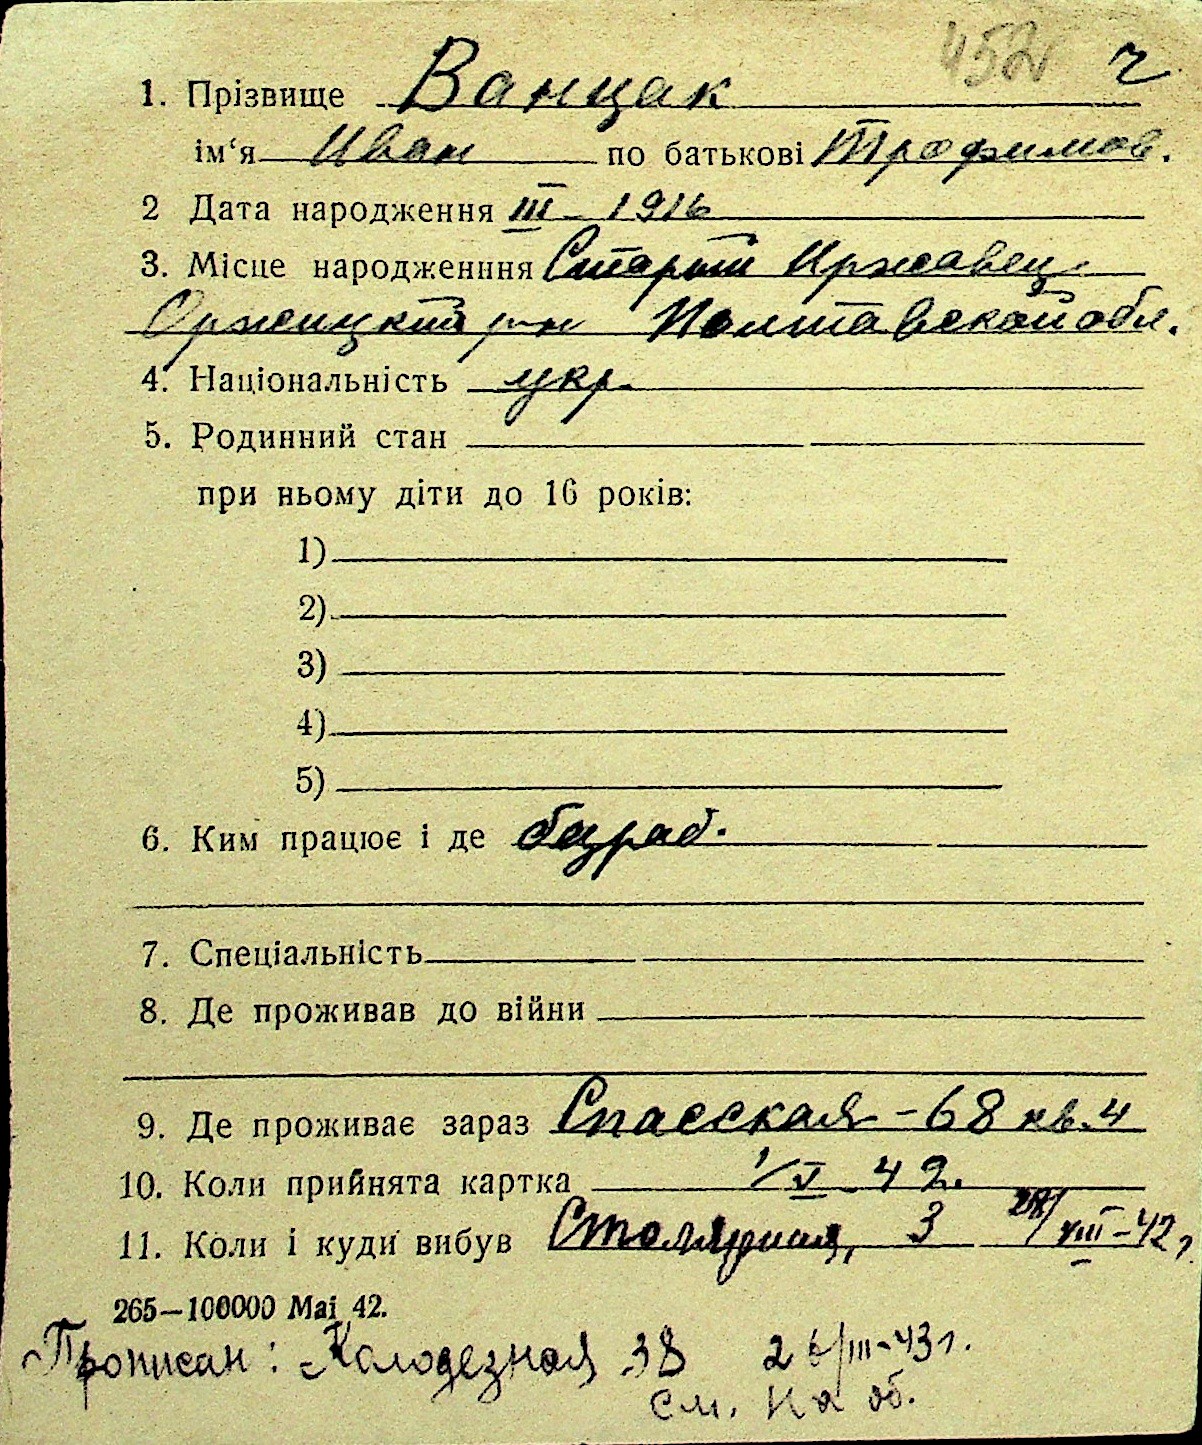 452 ч
1. Прізвище Ванцак
ім‘я Иван по батькові Трофимов.
2 Дата народження III - 1916
3. Місце народженння Старый Иржавец
Оржицкий р-н Полтавской обл.
4. Національність укр.
5. Родинний стан
при ньому діти до 16 років:
1)
2)
3)
4)
5)
6. Ким працює і де безраб.
7. Спеціальність
8. Де проживав до війни
9. Де проживає зараз Спасская - 68 кв. 4
10. Коли прийнята картка 1/V 42.
11. Коли і куди вибув Столярная, 3 28/VIII-42 г.
265—100000 Mai 42.
Прописан: Колодезная 38 26/III-43 г.
см. на об.